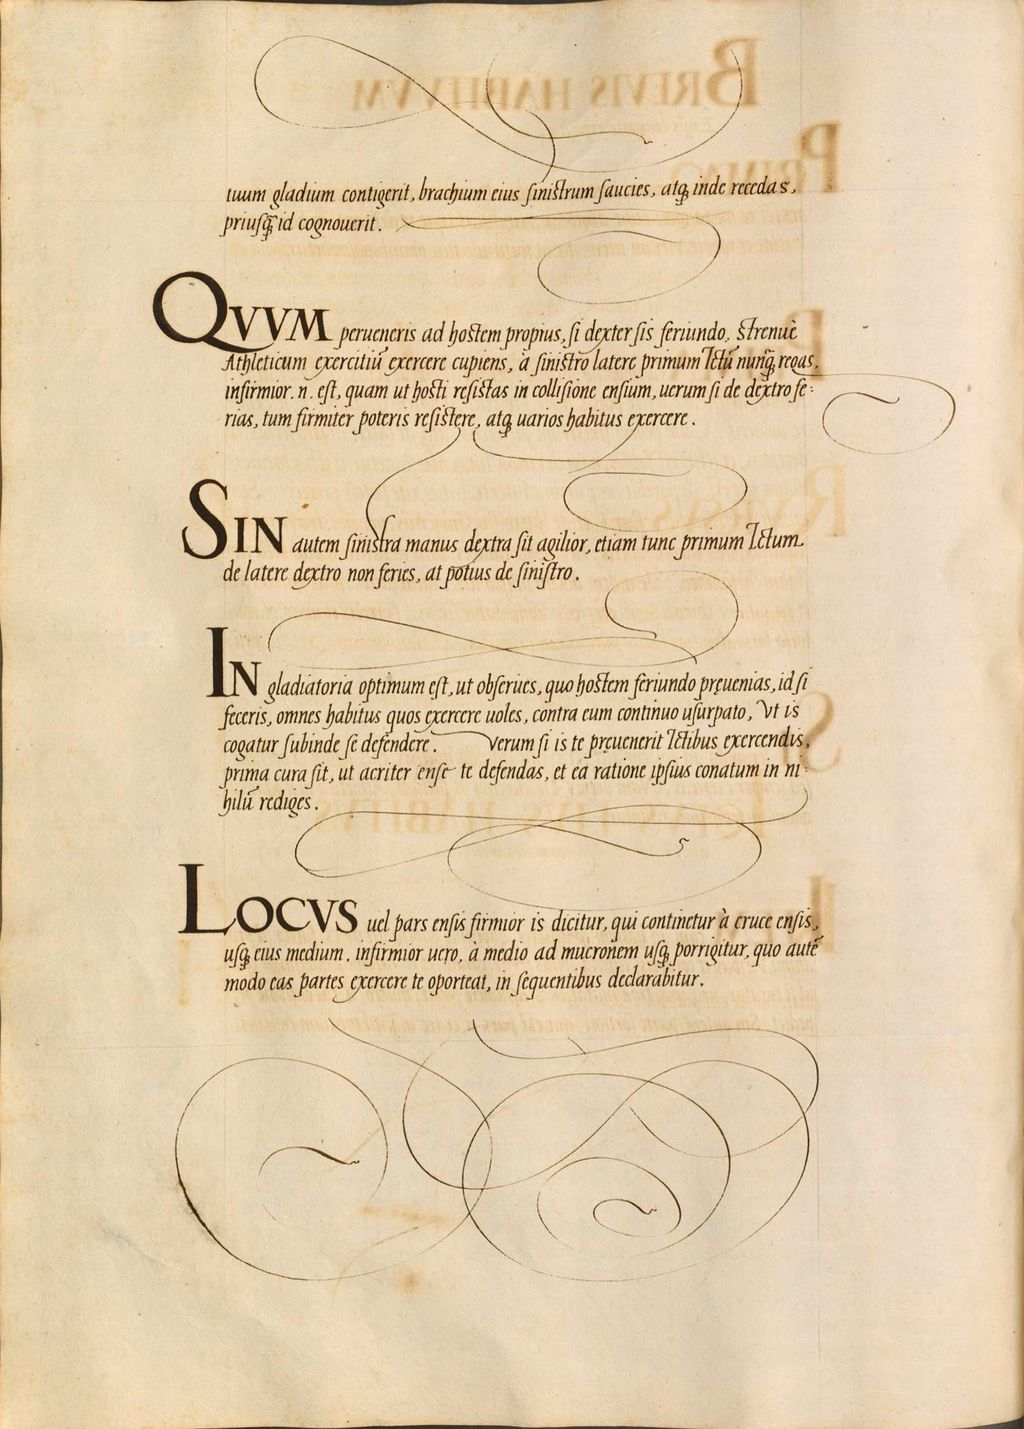 tuum gladium contigerit, brachium eius sinistrum saucies, atq; inde recedas,
priusq; id cognouerit.
QVVM perueneris ad hostem propius, si dexter sis feriundo, strenuè
Athleticum exercitiũ exercere cupiens, à sinistro latere primum Ictũ nunq; regas,
infirmior .n. est, quam ut hosti resistas in collisione ensium, uerum si de dextro fe:
rias, tum firmiter poteris resistere, atq; uarios habitus exercere.
SIN autem sinistra manus dextra sit agilior, etiam tunc primum Ictum
de latere dextro non feries, at potius de sinistro.
IN gladiatoria optimum est, ut obserues, quo hostem feriundo pręuenias, id si
feceris, omnes habitus quos exercere uoles, contra eum continuo usurpato, Vt is
cogatur subinde se defendere. Verum si is te pręuenerit Ictibus exercendis,
prima cura sit, ut acriter ense te defendas, et ea ratione ipsius conatum in ni:
hilũ rediges.
LOCVS uel pars ensis firmior is dicitur, qui continetur à cruce ensis,
usq; eius medium, infirmior uero, à medio ad mucronem usq; porrigitur, quo autẽ
modo eas partes exercere te oporteat, in sequentibus declarabitur.